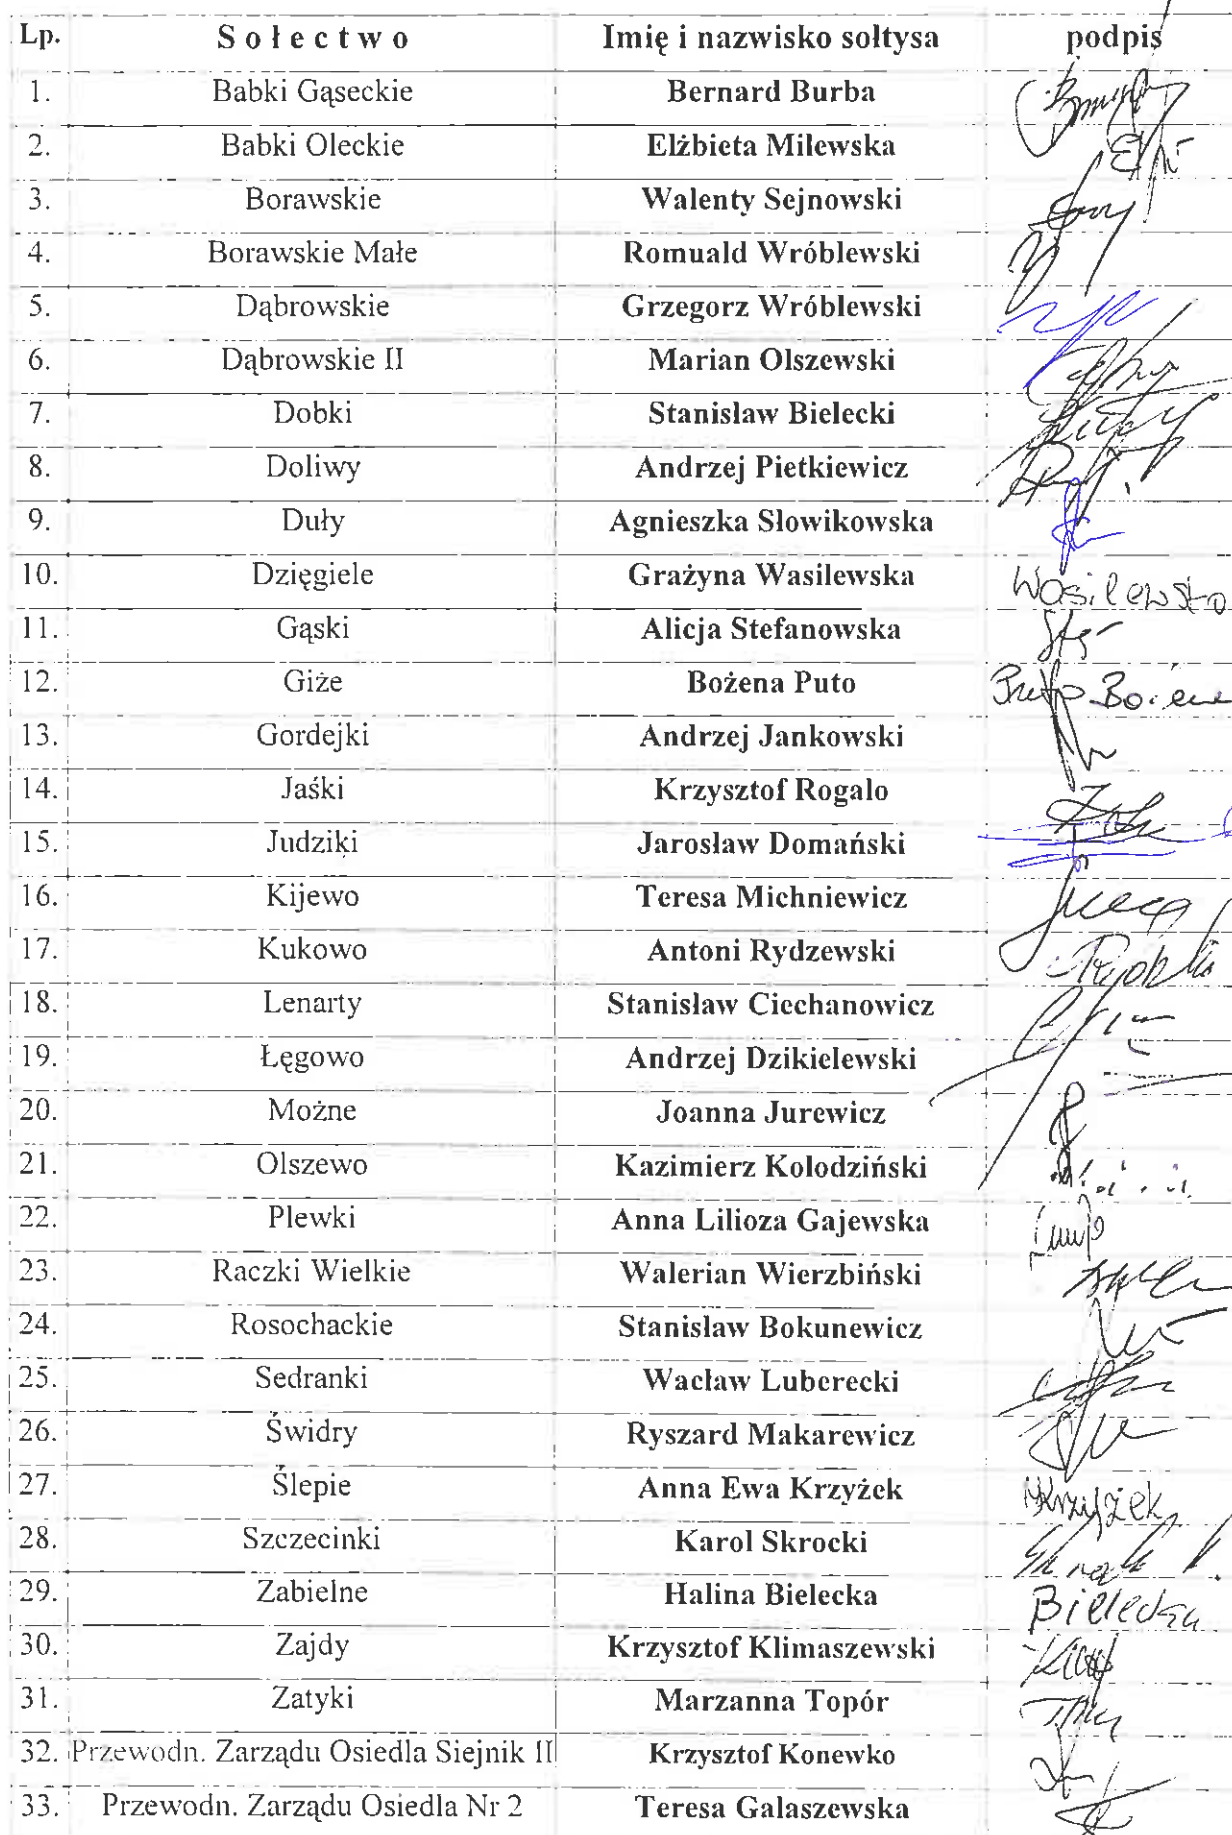 Lp. Sołectwo Imię i nazwisko sołtysa podpis
1. Babki Gąseckie Bernard Burba
2. Babki Oleckie Elżbieta Milewska
3. Borawskie Walenty Sejnowski
4. Borawskie Małe Romuald Wróblewski
5. Dąbrowskie Grzegorz Wróblewski
6. Dąbrowskie II Marian Olszewski
7. Dobki Stanisław Bielecki
8. Doliwy Andrzej Pietkiewicz
9. Duły Agnieszka Słowikowska
10. Dzięgiele Grażyna Wasilewska Wasilewska
11. Gąski Alicja Stefanowska
12. Giże Bożena Puto Puto Bożena
13. Gordejki Andrzej Jankowski
14. Jaśki Krzysztof Rogalo
15. Judziki Jarosław Domański
16. Kijewo Teresa Michniewicz
17. Kukowo Antoni Rydzewski
18. Lenarty Stanisław Ciechanowicz
19. Łęgowo Andrzej Dzikielewski
20. Możne Joanna Jurewicz
21. Olszewo Kazimierz Kolodziński
22. Plewki Anna Lilioza Gajewska
23. Raczki Wielkie Walerian Wierzbiński
24. Rosochackie Stanisław Bokunewicz
25. Sedranki Wacław Luberecki
26. Świdry Ryszard Makarewicz
27. Ślepie Anna Ewa Krzyżek Krzyżek
28. Szczecinki Karol Skrocki
29. Zabielne Halina Bielecka Bielecka
30. Zajdy Krzysztof Klimaszewski
31. Zatyki Marzanna Topór
32. Przewodn. Zarządu Osiedla Siejnik II Krzysztof Konewko
33. Przewodn. Zarządu Osiedla Nr 2 Teresa Galaszewska